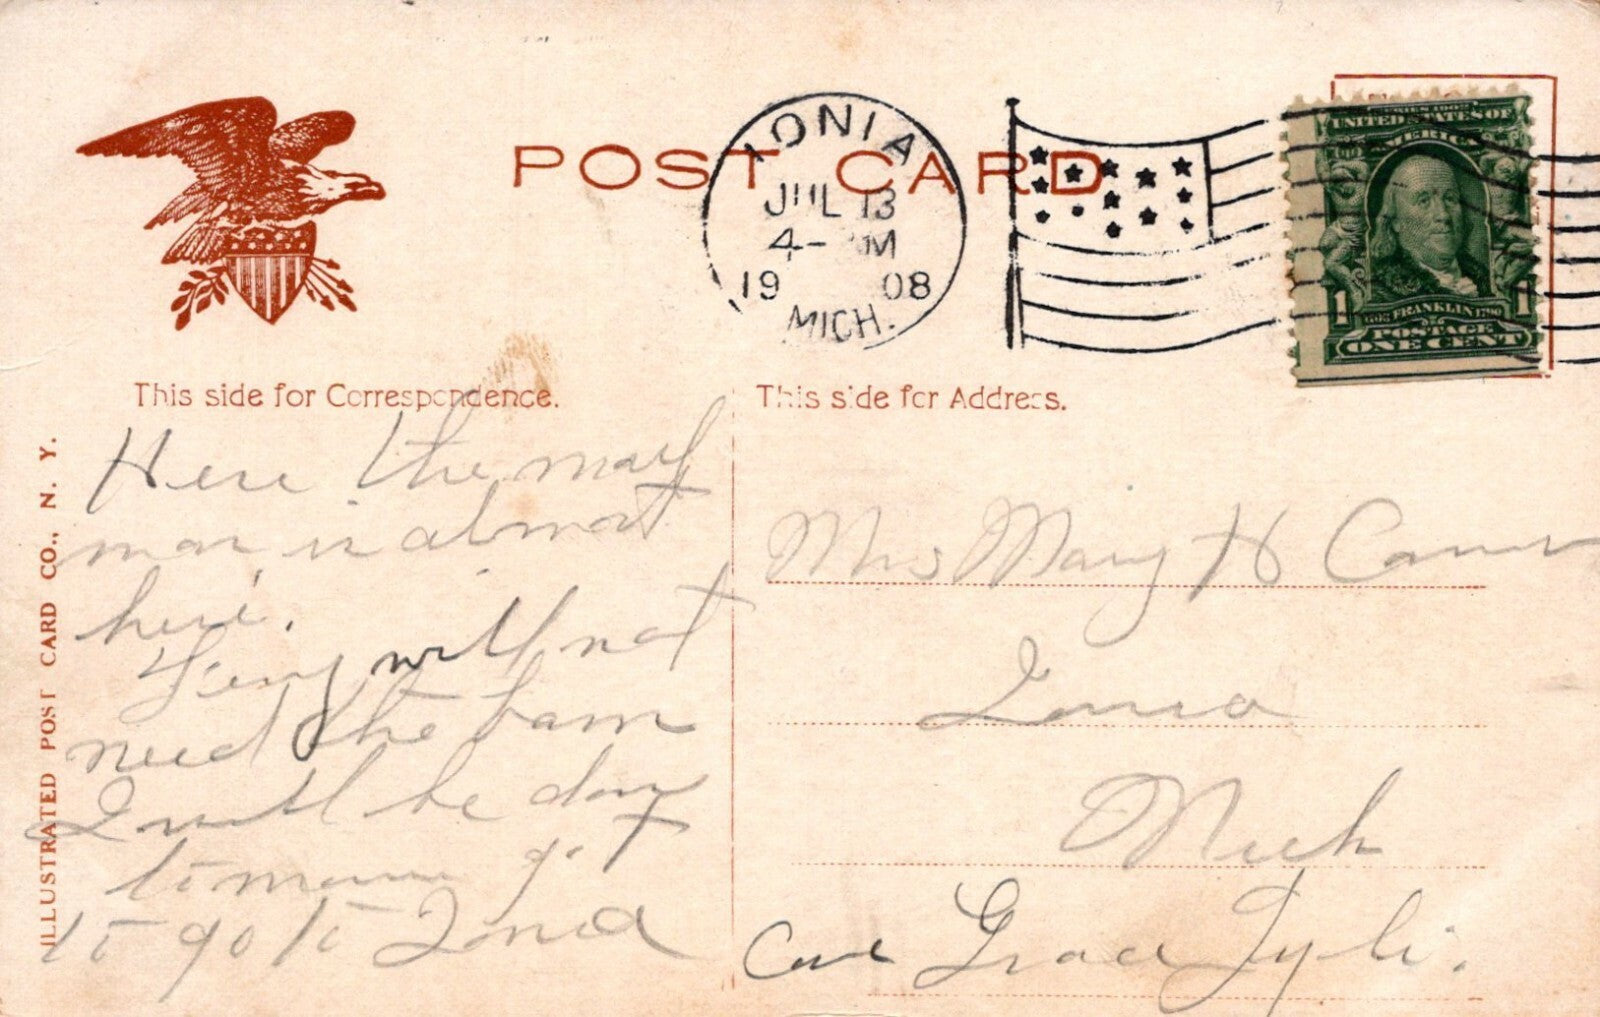 POST CARD
IONIA
JUL 13
4- M
19 08
MICH.
SERIES 1902
UNITED STATES OF
AMERICA
1 1
FRANKLIN
POSTAGE
ONE CENT
This side for Correspondence.
This side for Address.
ILLUSTRATED POST CARD CO., N. Y.
Here the
man is almost
here.
will not
need the barn
I will be down
to go to Ionia
Mrs Mary H
Ionia
Mich
Care Grace